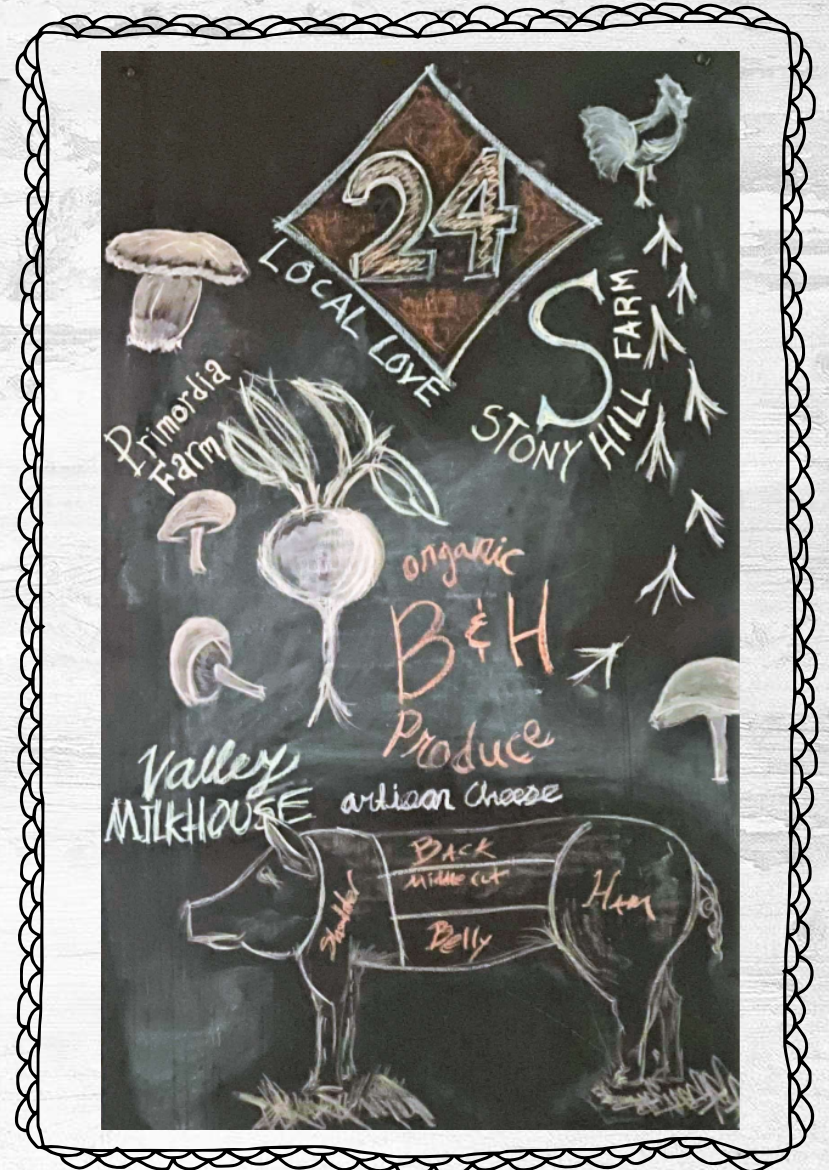 24
LOCAL LOVE
S
STONY HILL FARM
Primordia
Farm
organic
B & H
Produce
Valley
MILKHOUSE
artisan cheese
Shoulder
BACK
Middle cut
Belly
HAM